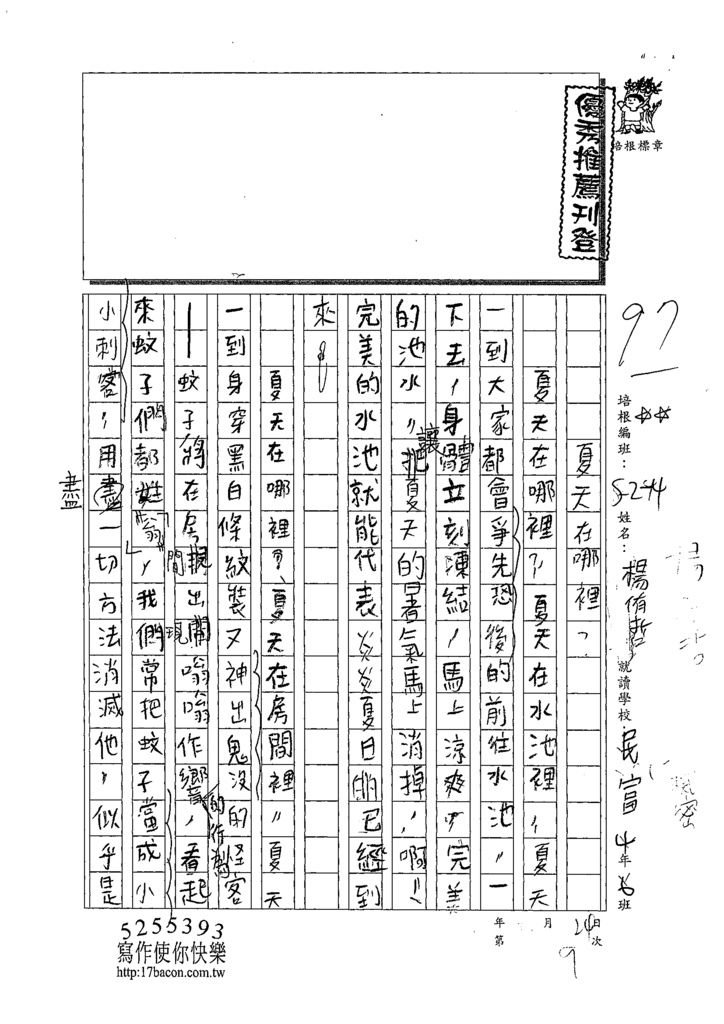 優秀推薦刊登
培根標章
97
培根編班：
5244
姓名：
楊侑哲
就讀學校：
民富
4年
班
年
月
24日
第
次
9
夏天在哪裡？
夏天在哪裡？夏天在水池裡，夏天
一到大家都會爭先恐後的前往水池。一
下去，身體立刻凍結，馬上涼爽。完美
的池水，把夏天的暑氣馬上消掉，啊！
讓
完美的水池就能代表炎炎夏日的已經到
來。
夏天在哪裡？夏天在房間裡。夏天
一到身穿黑白條紋裝又神出鬼沒的怪客
—蚊子將在房間出現開嗡嗡作響，看起
的作勢
來蚊子們都姓「翁」，我們常把蚊子當成小
小刺客，用盡一切方法消滅他，似乎是
盡
5255393
寫作使你快樂
http:17bacon.com.tw